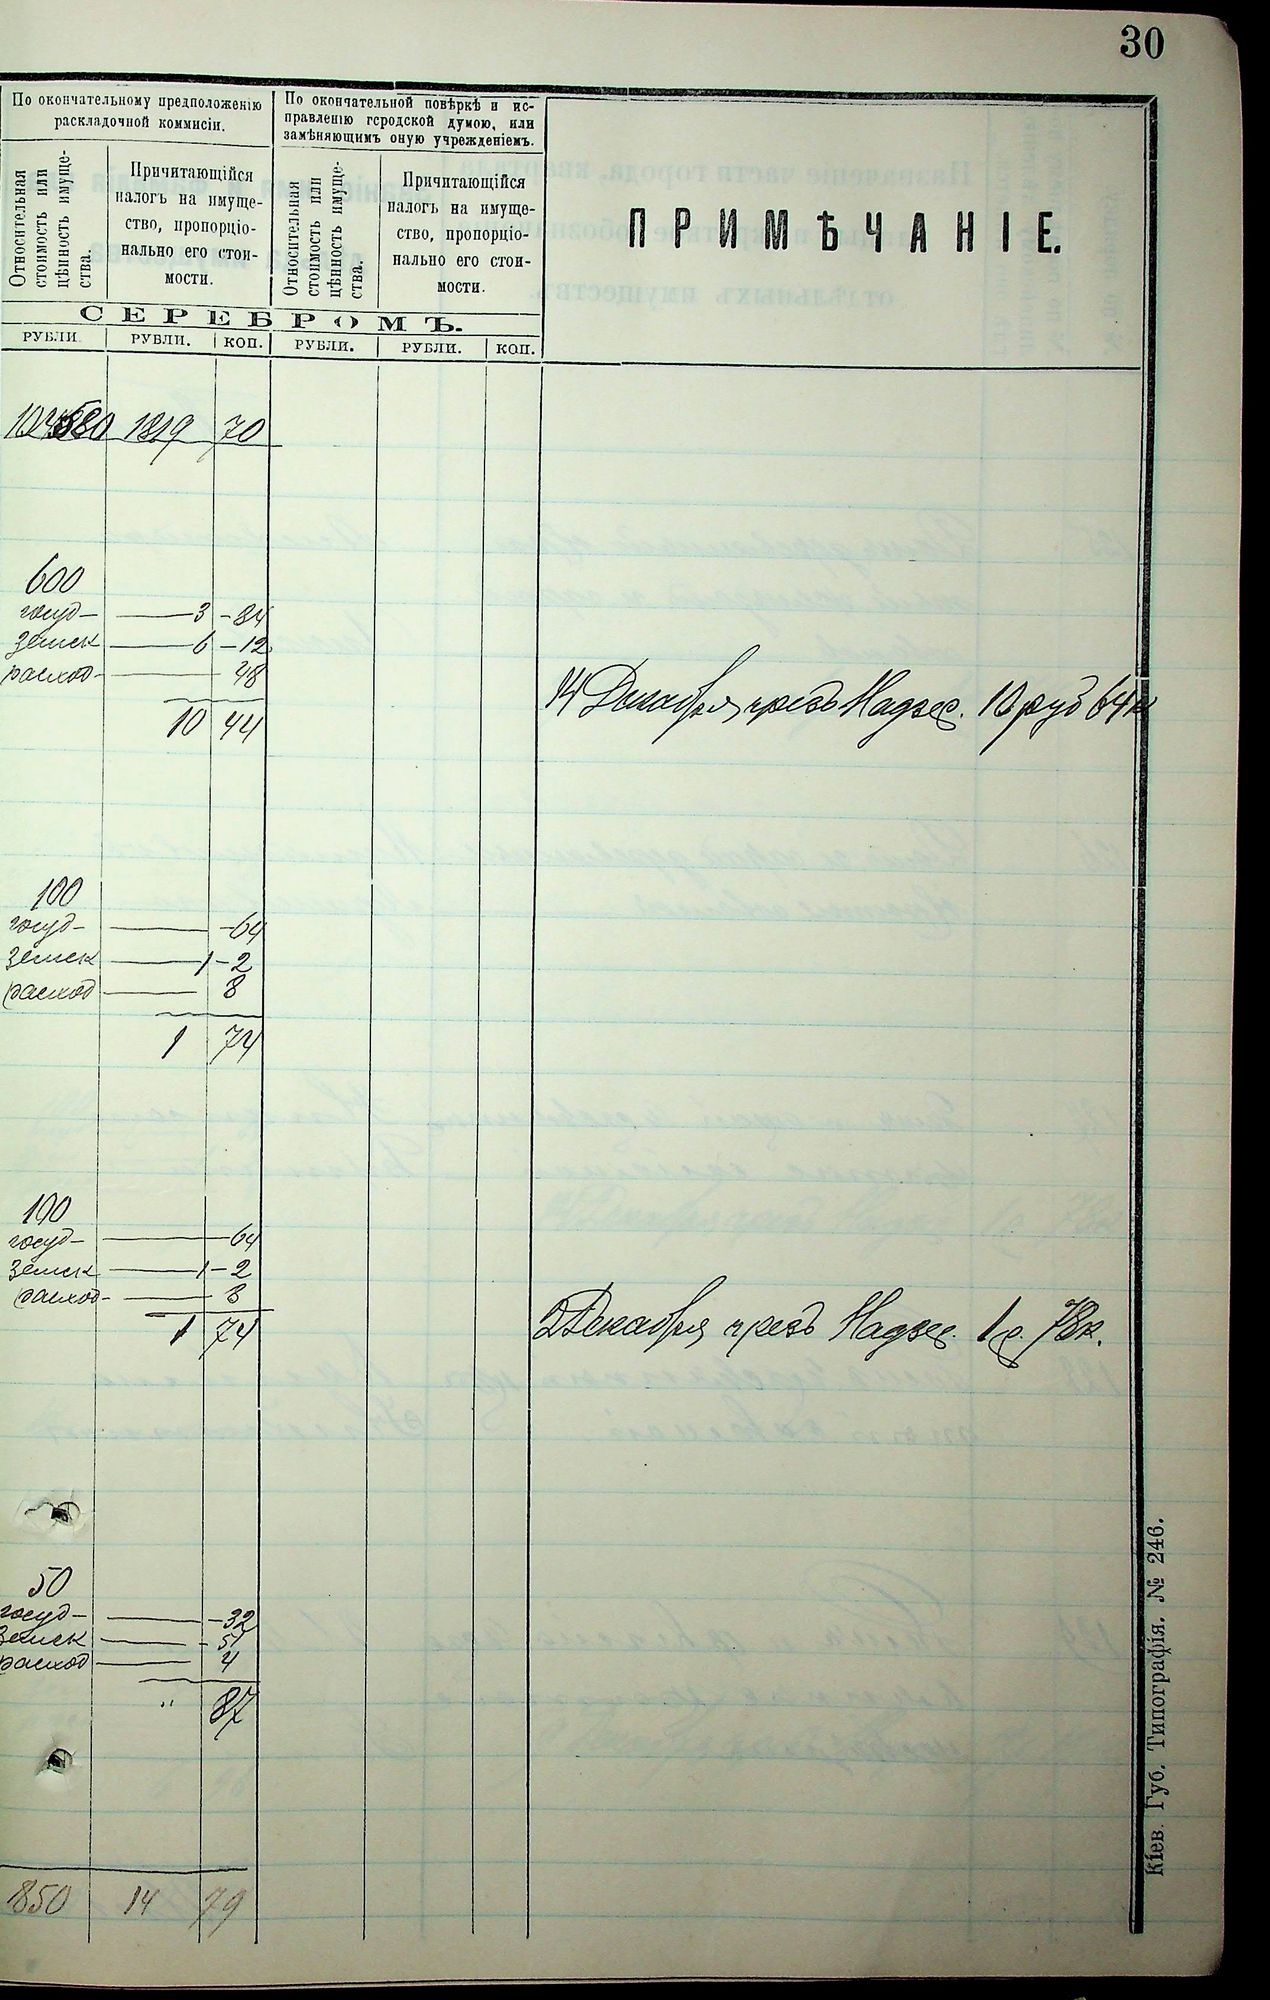 30
По окончательному предположенію
раскладочной коммисіи.
По окончательной повѣркѣ и ис-
правленію городской думою, или
замѣняющимъ оную учрежденіемъ.
Относительная
стоимость или
цѣнность имуще-
ства.
Причитающійся
налогъ на имуще-
ство, пропорціо-
нально его стои-
мости.
Относительная
стоимость или
цѣнность имуще-
ства.
Причитающійся
налогъ на имуще-
ство, пропорціо-
нально его стои-
мости.
ПРИМѢЧАНІЕ.
СЕРЕБРОМЪ.
РУБЛИ. РУБЛИ. КОП. РУБЛИ. РУБЛИ. КОП.
1819 70
600
госуд- 3 -84
земск 6 -12
расход- 48
10 44
14 Декабря чрезъ Надзер. 10 руб 64 к
100
госуд- -64
земск 1 -2
расход 8
1 74
100
госуд- -64
земск 1 -2
расход- 8
1 74
2 Декабря чрезъ Надзер. 1 р. 78 к.
50
госуд- -32
земск - 51
расход 4
" 87
850 14 79
Кіев. Губ. Типографія. № 246.